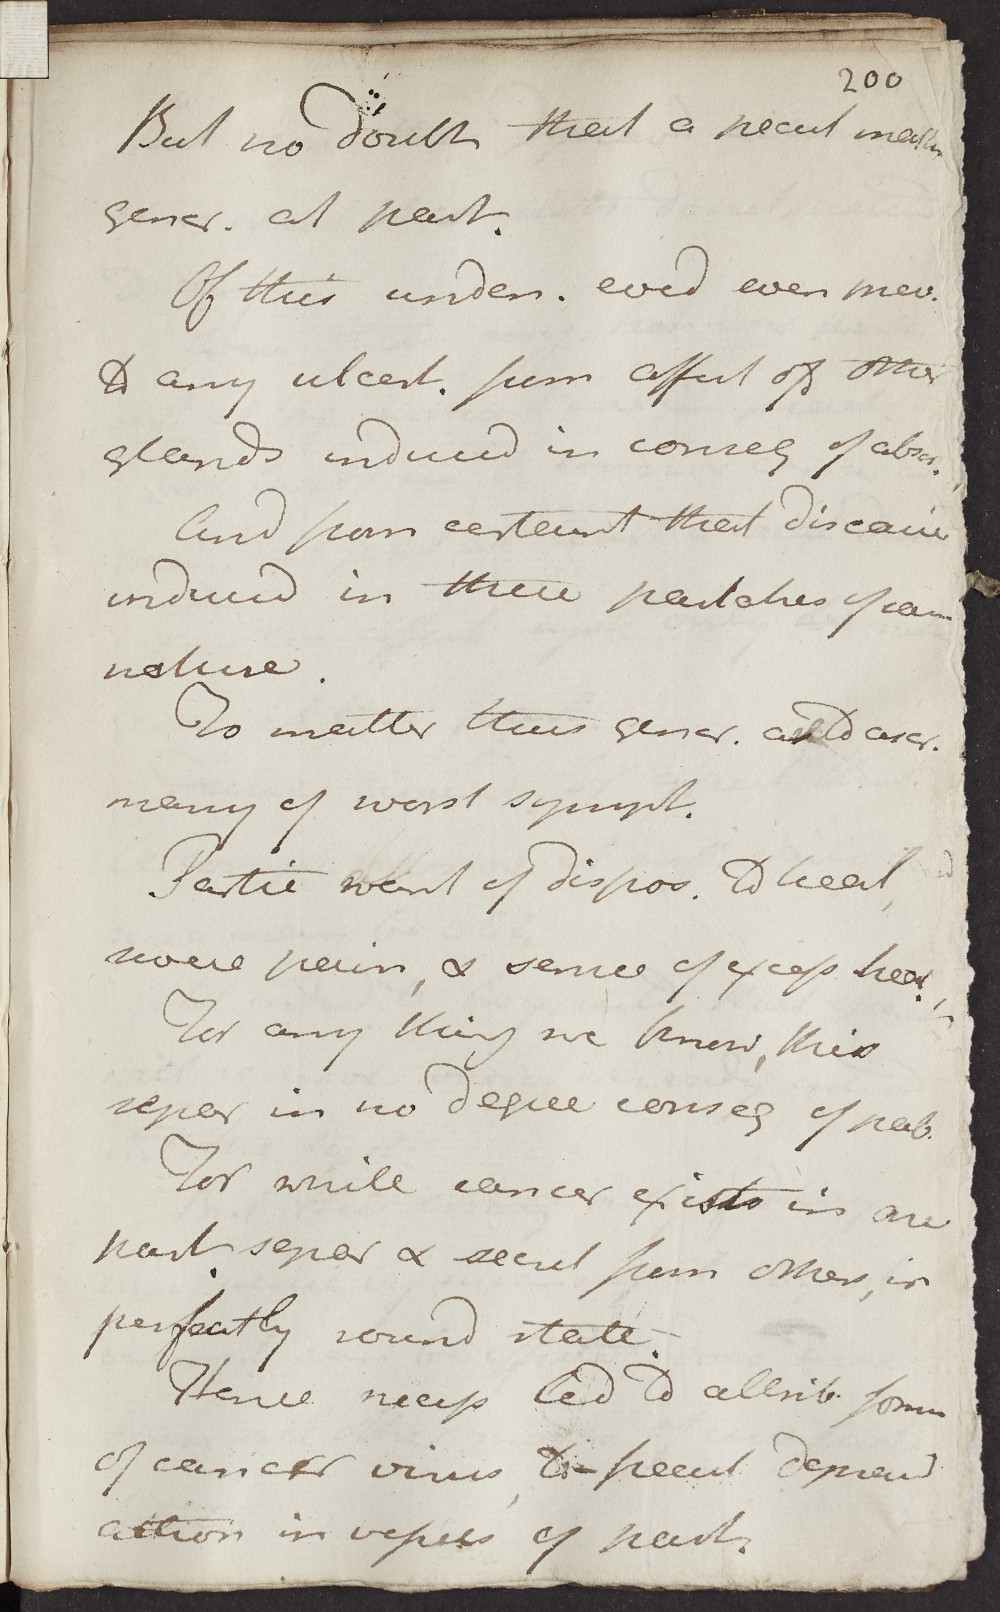 200
But no doubt that a pecul matter
gener. at part.
Of this unden. evid even prev.
to any ulcert. from affect of other
glands induced in conseq of absor.
And from certaint that disease
induced in these partakes of same
nature.
To matter thus gener. as to ascr.
many of worst sympt.
Partic want of dispos. to heal,
severe pain, & sense of excess heat,
For any thing we know, this
seper in no degree conseq of
For while cancer exists in one
part. seper & secret from others, in
perfectly sound state.
Hence necess led to attrib form
of cancer virus, to pecul deprav'd
action in vessels of part.